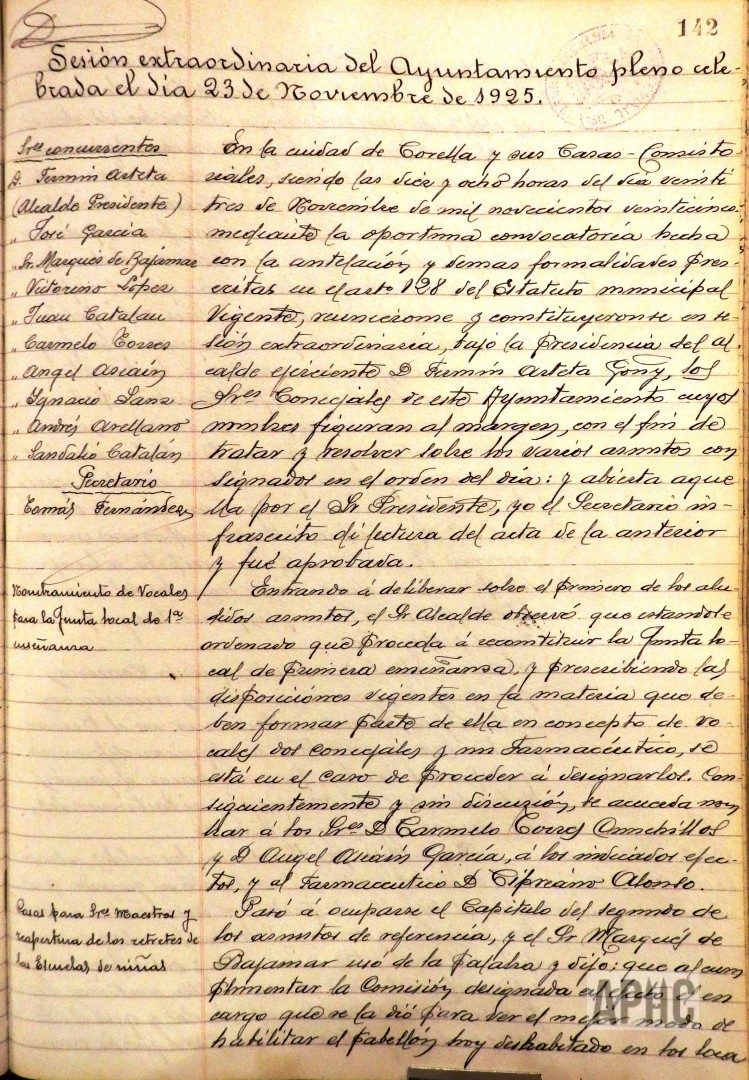 142
Sesión extraordinaria del Ayuntamiento pleno cele-
brada el día 23 de Noviembre de 1925.
Sres concurrentes
D. Fermin Arteta
(Alcalde Presidente)
" José Garcia
" Sr. Marqués de Bajamar
" Victorino López
" Juan Catalan
" Carmelo Torres
" Angel Asiaín
" Ignacio Sanz
" Andrés Arellano
" Sandalio Catalán
Secretario
Tomás Fernández
En la ciudad de Corella y sus Casas-Consisto-
riales, siendo las diez y ocho horas del dia veinti
tres de Noviembre de mil novecientos veinticinco
mediante la oportuna convocatoria hecha
con la antelación y demas formalidades pres-
critas en el arto 128 del Estatuto municipal
Vigente, reunieronse y constituyeronse en se-
sión extraordinaria, bajo la Presidencia del al-
calde ejerciente D Fermin Arteta Goñy, los
Sres Concejales de este Ayuntamiento cuyos
nombres figuran al margen, con el fin de
tratar y resolver sobre los varios asuntos con
signados en el orden del día: y abierta aque
lla por el Sr Presidente, yo el Secretario in-
frascrito dí lectura del acta de la anterior
y fué aprobada.
Nombramiento de Vocales
para la Junta local de 1ª
enseñanza
Entrando á deliberar sobre el primero de los alu-
didos asuntos, el Sr Alcalde observó que estandole
ordenado que proceda á reconstituir la Junta lo-
cal de primera enseñanza, y prescribiendo las
disposiciones vigentes en la materia que de-
ben formar parte de ella en concepto de vo-
cales dos concejales y un Farmacéutico, se
está en el caso de proceder á designarlos. Con-
siguientemente y sin discusión, se acuerda nom
brar á los Sres D Carmelo Torres Cunchillos
y D Angel Asiaín García, á los indicados efec-
tos, y al Farmaceutico D Cipriano Alonso.
Casas para Sres Maestros y
reapertura de los retretes de
las Escuelas de niñas
Pasó á ocuparse el Capítulo del segundo de
los asuntos de referencia, y el Sr Marqués de
Bajamar usó de la palabra y dijo: que al cum
plimentar la Comisión designada al efecto el en
cargo que se la dió para ver el mejor modo de
habilitar el pabellón hoy deshabitado en los loca
APHC